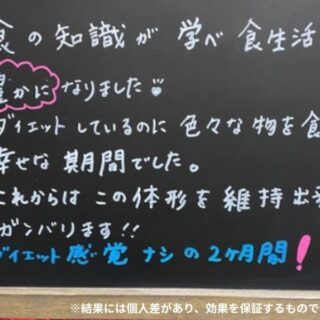 食の知識が学べ食生活
豊かになりました
ダイエットしているのに色々な物を食
幸せな期間でした。
これからはこの体形を維持出来
ガンバります!!
ダイエット感覚ナシの2ヶ月間!
※結果には個人差があり、効果を保証するもので